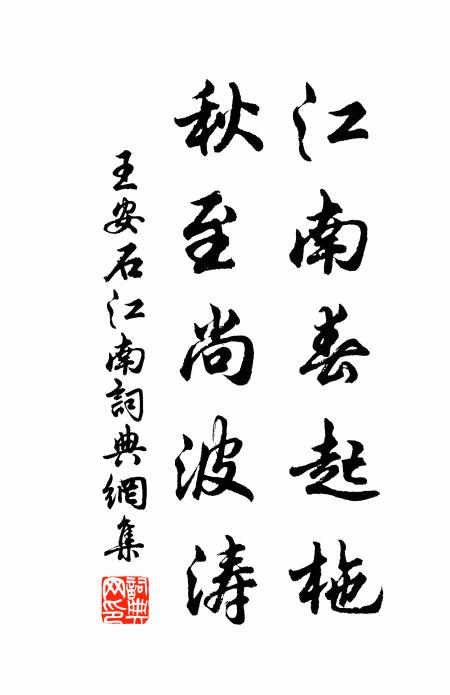 江南春起柂
秋至尚波涛
王安石江南詞典網集
詞典网印